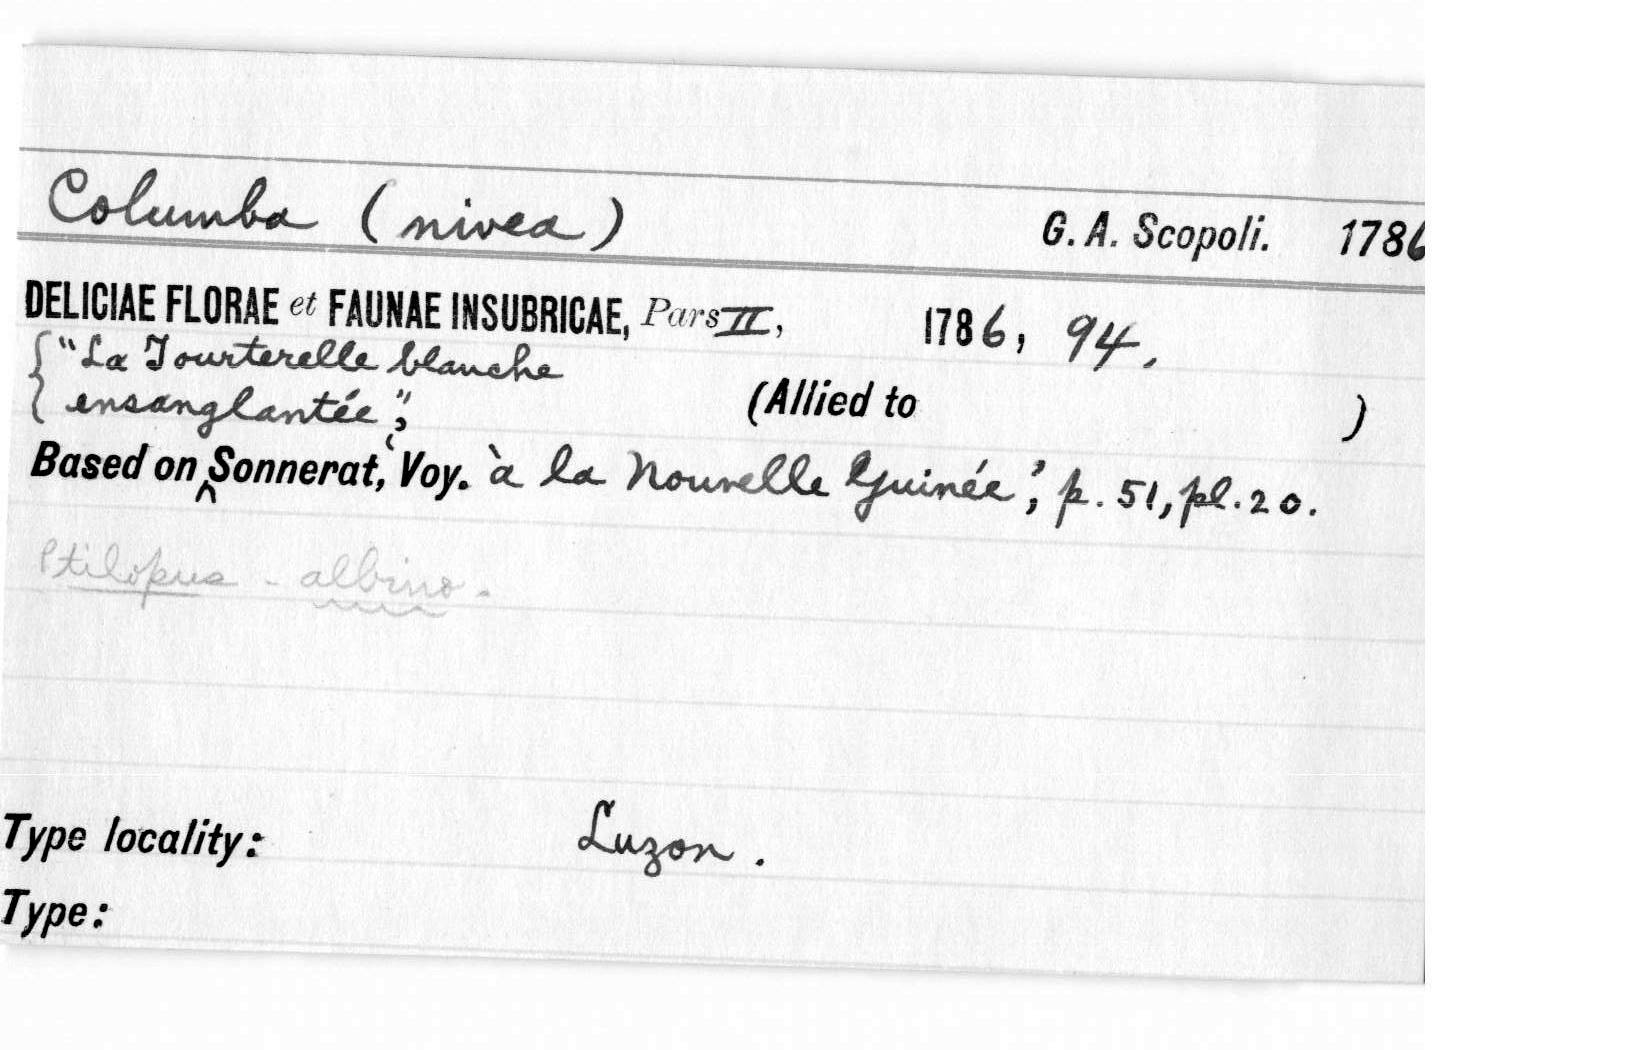 Columba (nivea) G. A. Scopoli. 1786
DELICIAE FLORAE et FAUNAE INSUBRICAE, Pars II, 1786, 94.
{"La Tourterelle blanche
ensanglantée", (Allied to )
Based on ^ Sonnerat, 'Voy. à la Nouvelle Guinée', p. 51, pl. 20.
Ptilopus - albino.
Type locality: Luzon.
Type: